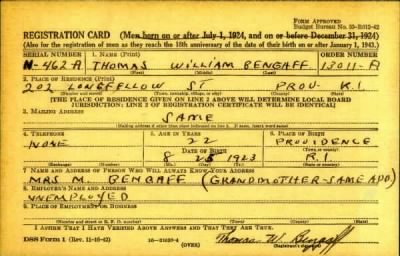 FORM APPROVED
Budget Bureau No. 33-R012-42
REGISTRATION CARD (Men born on or after July 1, 1924, and on or before December 31, 1924)
(Also for the registration of men as they reach the 18th anniversary of the date of their birth on or after January 1, 1943.)
SERIAL NUMBER 1. NAME (Print) ORDER NUMBER
N-462-A THOMAS WILLIAM BENGAFF 13011-A
(First) (Middle) (Last)
2. PLACE OF RESIDENCE (Print)
202 LONGFELLOW ST PROV. R.I.
(Number and street) (Town, township, village, or city) (County) (State)
[THE PLACE OF RESIDENCE GIVEN ON LINE 2 ABOVE WILL DETERMINE LOCAL BOARD
JURISDICTION; LINE 2 OF REGISTRATION CERTIFICATE WILL BE IDENTICAL]
3. MAILING ADDRESS
SAME
[Mailing address if other than place indicated on line 2. If same, insert word same]
4. TELEPHONE 5. AGE IN YEARS 6. PLACE OF BIRTH
NONE 22 PROVIDENCE
DATE OF BIRTH (Town or county)
8 25 1923 R.I.
(Exchange) (Number) (Mo.) (Day) (Yr.) (State or country)
7. NAME AND ADDRESS OF PERSON WHO WILL ALWAYS KNOW YOUR ADDRESS
MRS M. BENGAFF (GRANDMOTHER-SAME ADD.)
8. EMPLOYER'S NAME AND ADDRESS
UNEMPLOYED
9. PLACE OF EMPLOYMENT OR BUSINESS
(Number and street or R. F. D. number) (Town) (County) (State)
I AFFIRM THAT I HAVE VERIFIED ABOVE ANSWERS AND THAT THEY ARE TRUE.
DSS Form 1 (Rev. 11-16-42) (OVER) Thomas W. Bengaff
(Registrant's signature)